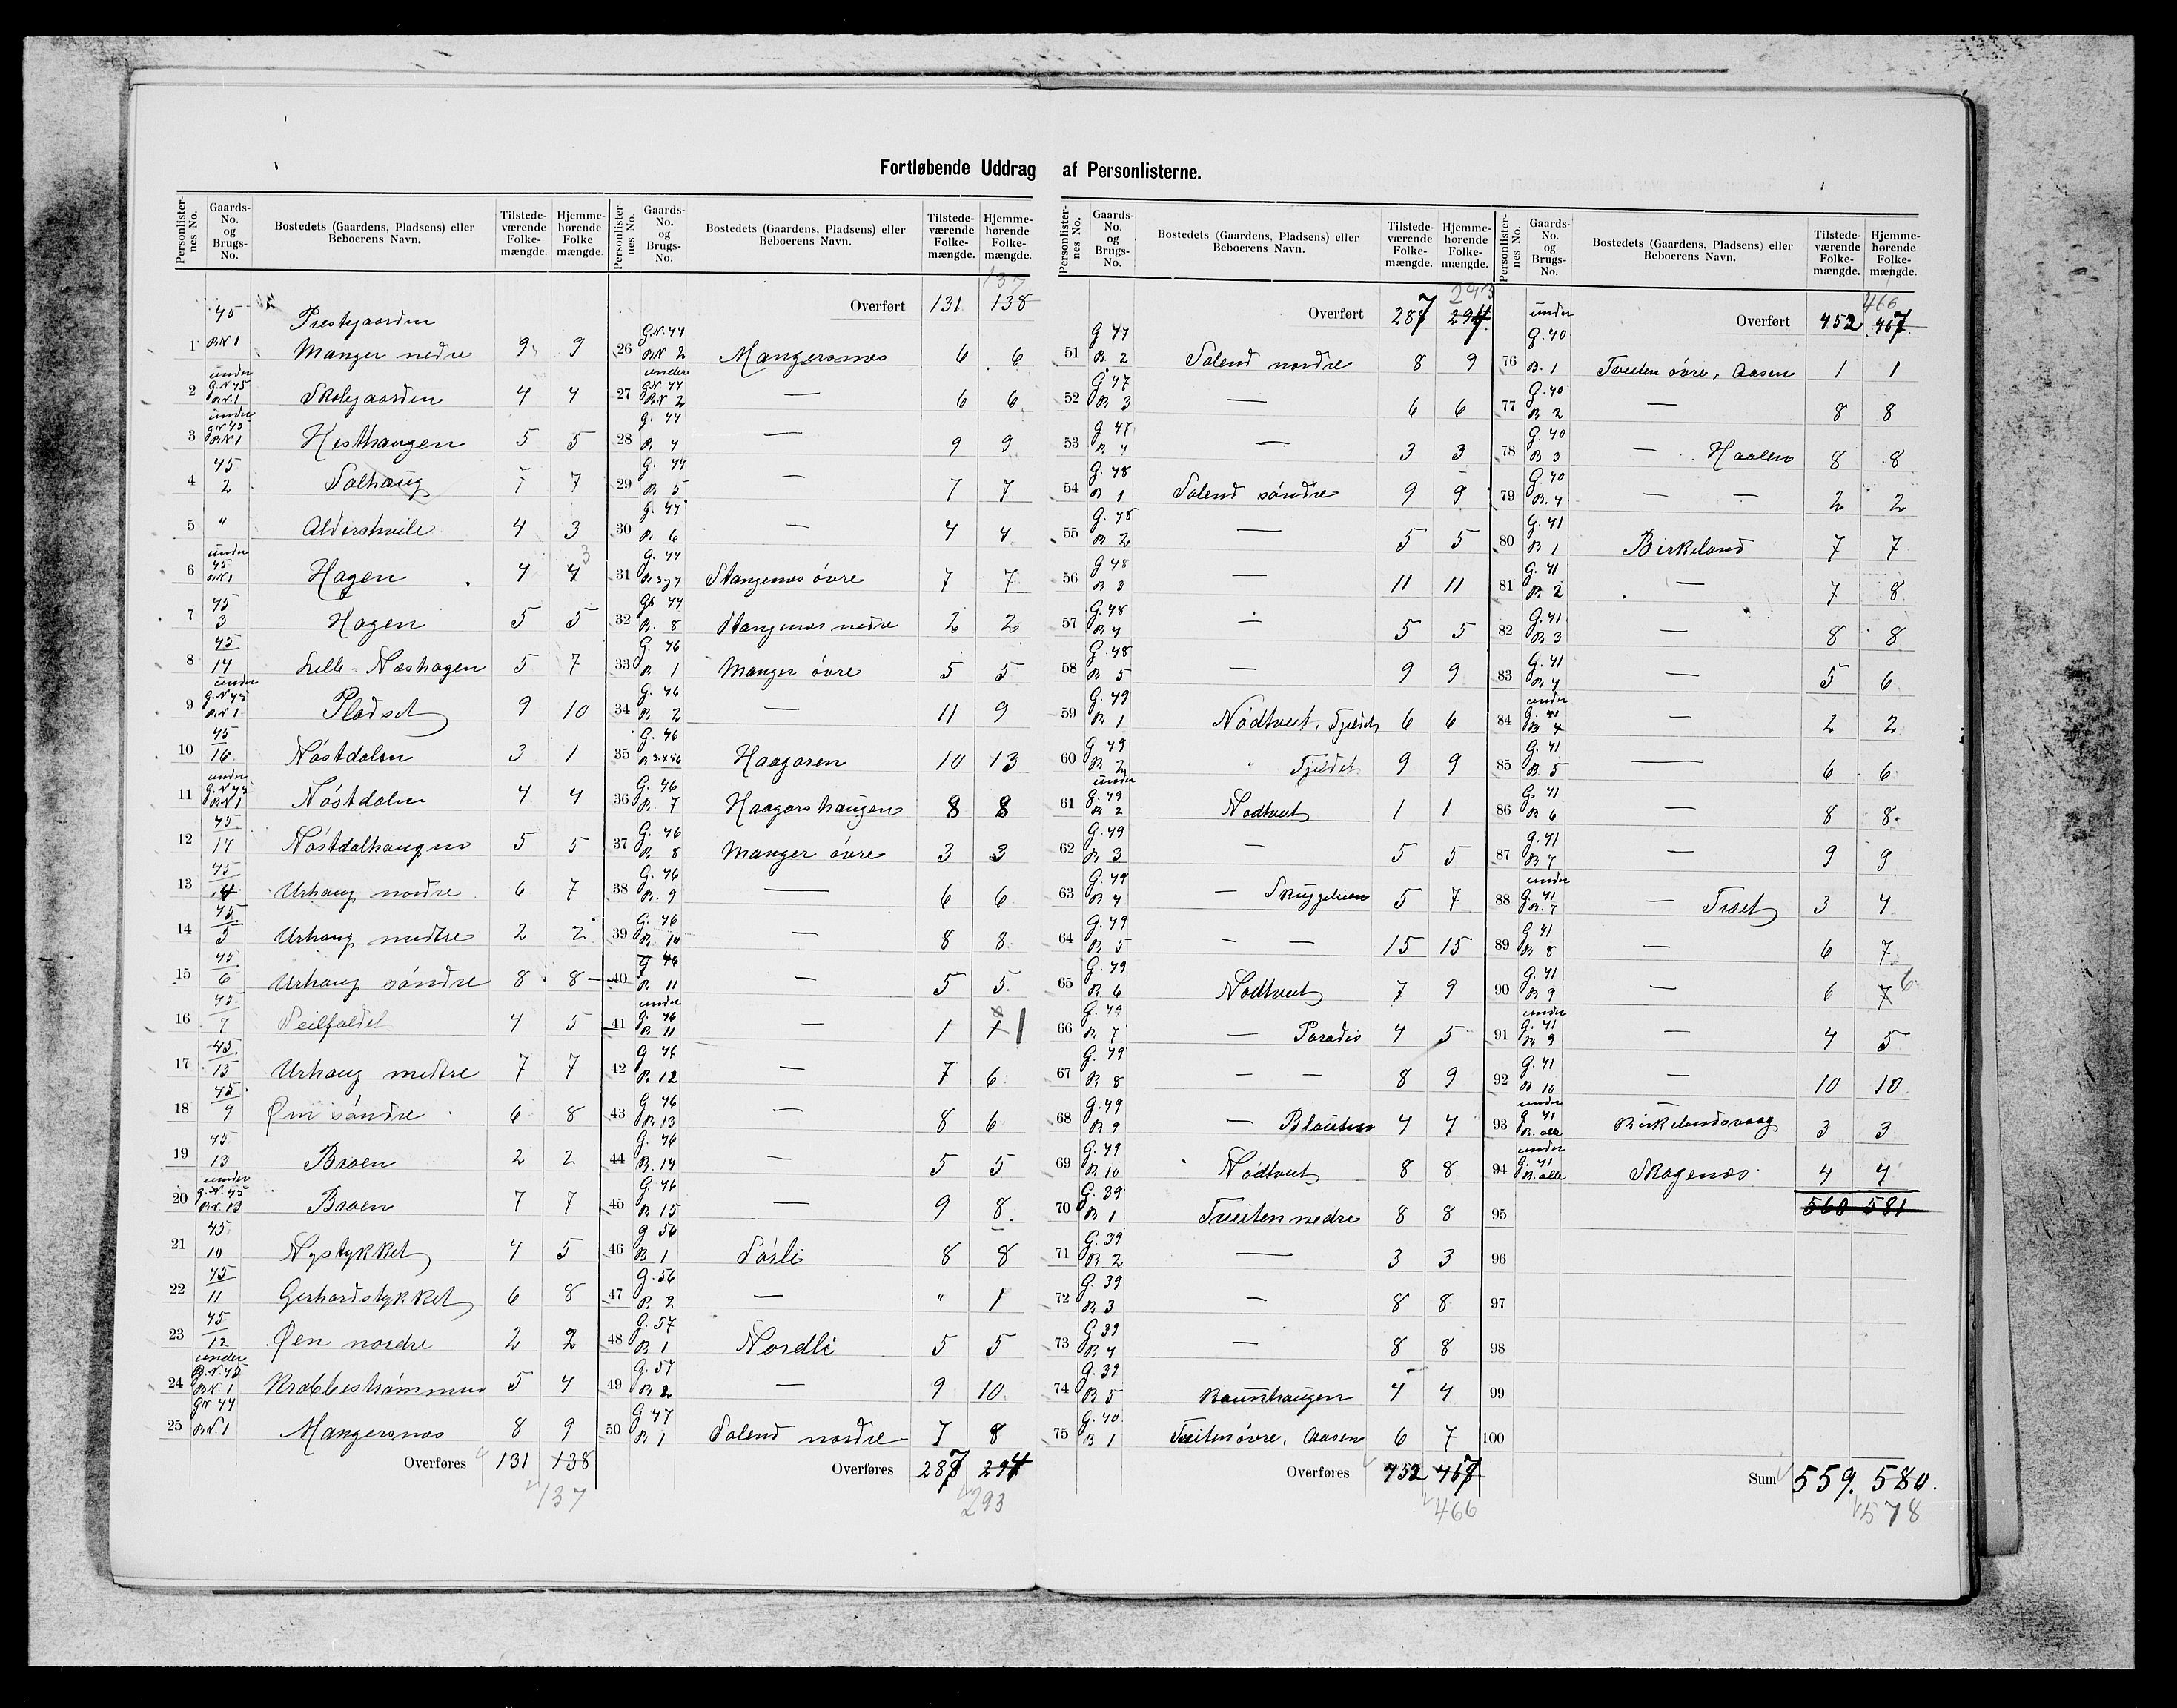 Fortløbende Uddrag af Personlisterne.
Personlisternes No. | Gaards-No. og Brugs-No. | Bostedets (Gaardens, Pladsens) eller Beboerens Navn. | Tilstedeværende Folkemængde. | Hjemmehørende Folkemængde.
45 Prestegaarden
1 B.N 1 Manger nedre 9 9
2 under G.N 45 B.N. 1 Skolegaarden 4 4
3 under G.N 45 B.N 1 Hesthaugen 5 5
4 45/2 Solhaug 7 7
5 " Aldershvile 4 3
6 under 45 B.N 1 Hagen 4 4 3
7 45/3 Hagen 5 5
8 45/14 Lille-Næshagen 5 7
9 under G.N 45 B.N 1 Pladset 9 10
10 45/16 Nöstdalen 3 1
11 under G.N 45 B.N 1 Nöstdalen 4 4
12 45/17 Nöstdalhaugen 5 5
13 45/4 Urhaug nordre 6 7
14 45/5 Urhaug medtre 2 2
15 45/6 Urhaug söndre 8 8
16 45/7 Seilfaldet 4 5
17 45/15 Urhaug medtre 7 7
18 45/9 Øen söndre 6 8
19 45/13 Broen 2 2
20 under G.N. 45 B.N. 13 Broen 7 7
21 45/10 Nystykket 4 5
22 45/11 Gerhardstykket 6 8
23 45/12 Øen nordre 2 2
24 under G.N. 45 B.N. 1 Krabbeströmmen 5 4
25 G.N 44 B.N. 1 Mangersnes 8 9
Overføres 131 138
137
137
Overført 131 138
26 G.N. 44 B.N 2 Mangersnes 6 6
27 under G.N. 44 B.N 2 — 6 6
28 G. 44 B. 4 — 9 9
29 G. 44 B. 5 — 7 7
30 G. 44 B. 6 — 4 4
31 G. 44 B. 3 & 7 Stangenes övre 7 7
32 G. 44 B. 8 Stangenes nedre 2 2
33 G. 46 B 1 Manger övre 5 5
34 G. 46 B. 2 — 11 9
35 G. 46 Haagasen 10 13
36 G. 46 B. 7 Haagarshaugen 8 8
37 G. 46 B. 8 Manger övre 3 3
38 G. 46 B. 9 — 6 6
39 G. 46 B. 10 — 8 8
40 G 46 B. 11 — 5 5
41 under G. 46 B. 11 — 1 1
42 G 46 B. 12 — 7 6
43 G 46 B. 13 — 8 6
44 G. 46 B. 14 — 5 5
45 G. 46 B. 15 — 9 8
46 G 56 B 1 Sörli 8 8
47 G. 56 B. 2 — " 1
48 G. 57 B 1 Nordli 5 5
49 G. 57 B 2 — 9 10
50 G 47 B 1 Solend nordre 7 8
Overføres 287 294
293
293
Overført 287 294
51 G 47 B. 2 Solend nordre 8 9
52 G. 47 B 3 — 6 6
53 G 47 B 4 — 3 3
54 G. 48 B 1 Solend söndre 9 9
55 G. 48 B 2 — 5 5
56 G 48 B 3 — 11 11
57 G. 48 B 4 — 5 5
58 G. 48 B 5 — 9 9
59 G. 49 B 1 Nödtvet, Fjeldet 6 6
60 G 49 B. 2 " Fjeldet 9 9
61 under G. 49 B 2 Nödtvet 1 1
62 G. 49 B 3 — 5 5
63 G. 49 B 4 — Skuggelien 5 7
64 G. 49 B 5 — — 15 15
65 G. 49 B 6 Nödtvet 7 9
66 G. 49 B. 7 — Paradis 4 5
67 G. 49 B 8 — — 8 9
68 G. 49 B 9 — Blauten 4 4
69 G. 49 B 10 Nödtvet 8 8
70 G. 39 B 1 Tveiten nedre 8 8
71 G. 39 B 2 — 3 3
72 G. 39 B 3 — 8 8
73 G 39 B 4 — 8 8
74 G. 39 B 5 Raunhaugen 4 4
75 G. 40 B 1 Tveiten övre, Aasen 6 7
Overføres 452 467
466
466
Overført 452 467
76 under G. 40 B. 1 Tveiten övre, Aasen 1 1
77 G. 40 B 2 — 8 8
78 G. 40 B 3 — Haalen 8 8
79 G. 40 B. 4 — — 2 2
80 G. 41 B 1 Birkeland 7 7
81 G. 41 B. 2 — 7 8
82 G. 41 B 3 — 8 8
83 G. 41 B 4 — 5 6
84 under G. 41 B 4 — 2 2
85 G. 41 B. 5 — 6 6
86 G. 41 B 6 — 8 8
87 G. 41 B 7 — 9 9
88 under G. 41 B. 7 — Træet 3 4
89 G 41 B 8 — 6 7
90 G. 41 B 9 — 6 7 6
91 under G. 41 B 9 — 4 5
92 G. 41 B 10 — 10 10
93 under G 41 B. alle Birkelandsvaag 3 3
94 under G. 41 B. alle Skagenes 4 4
95 560 581
96
97
98
99
100
Sum 559. 580.
578